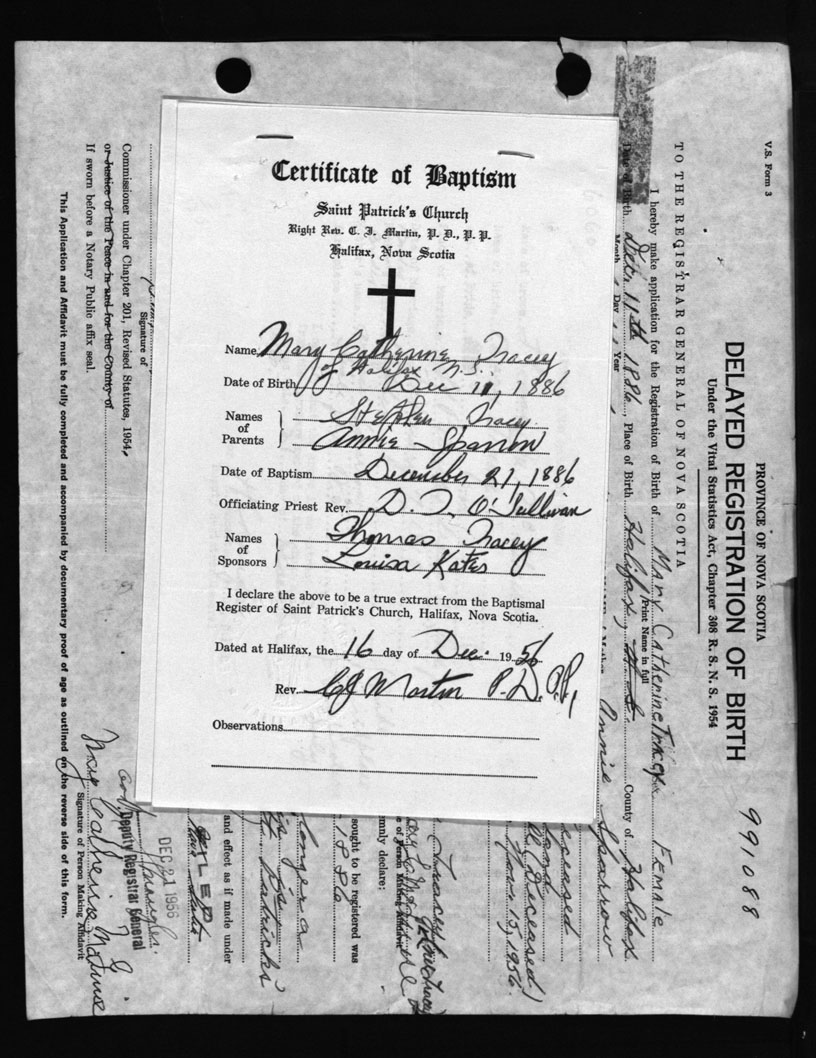 Certificate of Baptism
Saint Patrick's Church
Right Rev. C. J. Martin, P. D., P. P.
Halifax, Nova Scotia
Name Mary Catherine Tracey
of Halifax N.S.
Date of Birth Dec 11, 1886
Names of Parents Stephen Tracey
Annie Sparrow
Date of Baptism December 21, 1886
Officiating Priest Rev. D. J. O'Sullivan
Names of Sponsors Thomas Tracey
Louisa Kates
I declare the above to be a true extract from the Baptismal
Register of Saint Patrick's Church, Halifax, Nova Scotia.
Dated at Halifax, the 16 day of Dec. 1956
Rev. C J Martin P.D. P.P.
Observations
V.S. Form 3
PROVINCE OF NOVA SCOTIA
DELAYED REGISTRATION OF BIRTH
Under the Vital Statistics Act, Chapter 308 R. S. N. S. 1954
991088
TO THE REGISTRAR GENERAL OF NOVA SCOTIA
I hereby make application for the Registration of Birth of Mary Catherine Tracey Female
Print Name in full
Date of Birth Dec. 11th 1886, Place of Birth Halifax, N.S. County of Halifax
Month Day Year
Annie Sparrow
Deceased
Deceased)
Nov. 15, 1956
Tracey
mnly declare:
of Person Making Affidavit
sought to be registered was
1886
longer a
St. Patricks
and effect as if made under
FILED
DEC 21 1956
Deputy Registrar General
Signature of
Commissioner under Chapter 201, Revised Statutes, 1954,
or Justice of the Peace in and for the County of
If sworn before a Notary Public affix seal.
Mary Catherine Mature
Signature of Person Making Affidavit
This Application and Affidavit must be fully completed and accompanied by documentary proof of age as outlined on the reverse side of this form.